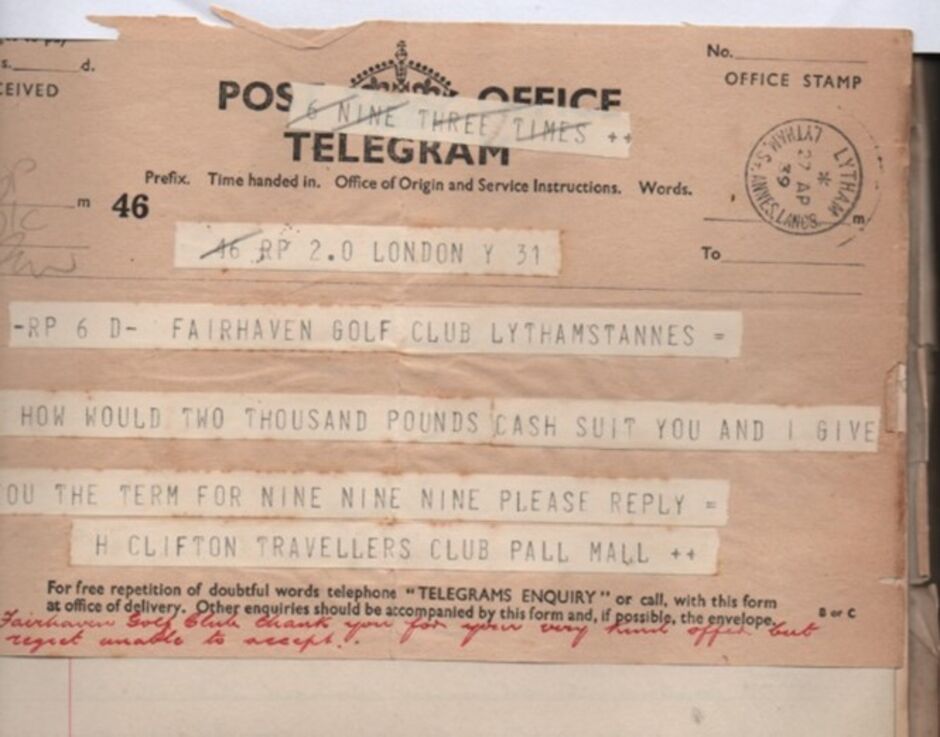 No.
s. d.
OFFICE STAMP
CEIVED
POS OFFICE
6 NINE THREE TIMES ++
TELEGRAM
LYTHAM
27 AP
39
LYTHAM, ST. ANNES, LANCS.
Prefix. Time handed in. Office of Origin and Service Instructions. Words.
m 46 m
46 RP 2.0 LONDON Y 31
To
-RP 6 D- FAIRHAVEN GOLF CLUB LYTHAMSTANNES =
HOW WOULD TWO THOUSAND POUNDS CASH SUIT YOU AND I GIVE
YOU THE TERM FOR NINE NINE NINE PLEASE REPLY =
H CLIFTON TRAVELLERS CLUB PALL MALL ++
For free repetition of doubtful words telephone "TELEGRAMS ENQUIRY" or call, with this form
at office of delivery. Other enquiries should be accompanied by this form and, if possible, the envelope. B or C
Fairhaven Golf Club thank you for your very kind offer but
regret unable to accept.